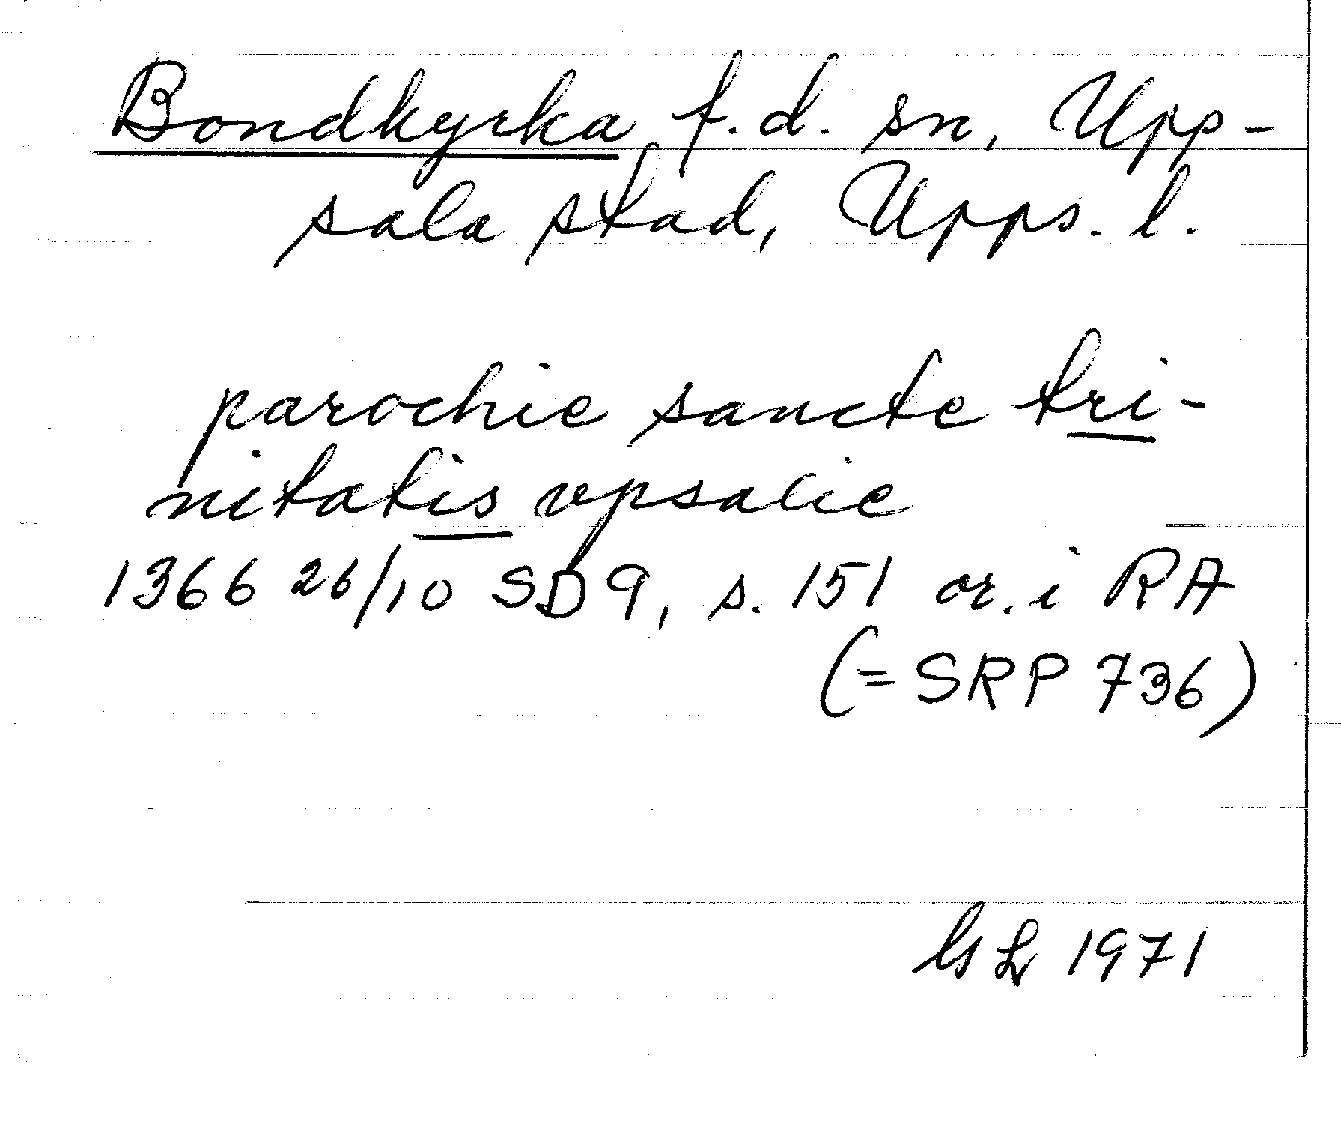 Bondkyrka f.d. sn, Upp-
sala stad, Upps. l.
parochie sancte tri-
nitatis vpsalie
1366 26/10 SD 9, s. 151 or. i RA
(= SRP 736)
GL 1971